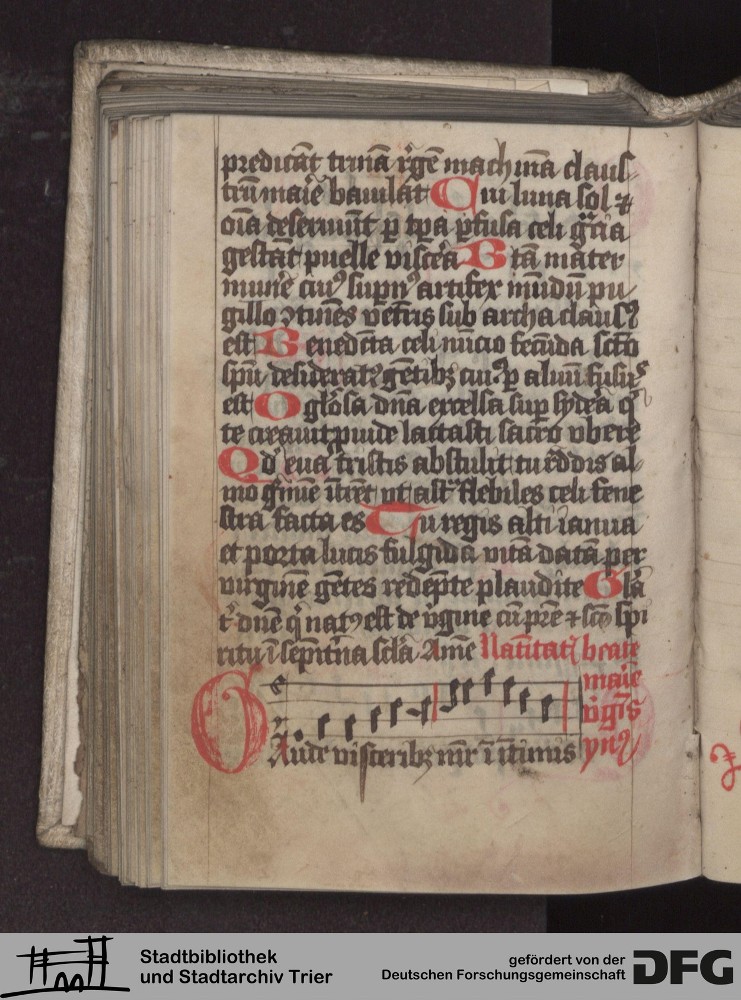 predicāt trinā r̄gē machinā claus
trū marie baiulat Cui luna sol ⁊
oīa deseruiūt ꝑ tpa ꝑfusa celi grā
gestāt puelle viscēa Btā mater
munē cuiꝰ supnꝰ artifex mūdū pu
gillo ꝯtinēs vētris sub archa clausꝰ
est Benedcta celi nūcio fecūda scto
spū desideratꝰ gētibꝫ cuiꝰ ꝑ aluū fusus
est O glosa dna excelsa sup sydera q
te creauit puide lactasti sacro vbere
Qd eua tristis abstulit tu reddis al
mo gmine ītrēt ut astra flebiles celi fene
stra facta es Tu regis alti ianua
et porta lucis fulgida vitā datā per
virginē gētes redēpte plaudite Gla
t dnē q natꝰ est de vgine cū pre ⁊ sco spi
ritu ī sempitna scla Amē Natitatꝭ beate
marie
v̄gīs
ymꝰ
Aude visceribꝫ mr ī ītimis
Stadtbibliothek
und Stadtarchiv Trier
gefördert von der
Deutschen Forschungsgemeinschaft
DFG